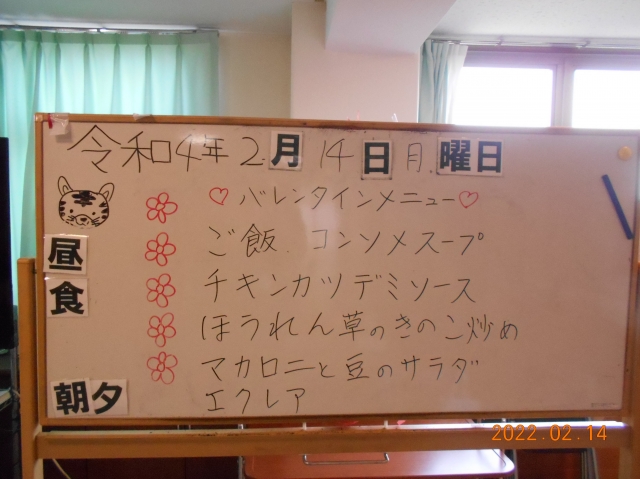 令和4年2月14日月曜日
♡バレンタインメニュー♡
ご飯 コンソメスープ
チキンカツデミソース
ほうれん草のきのこ炒め
マカロニと豆のサラダ
エクレア
昼食
朝夕
2022.02.14